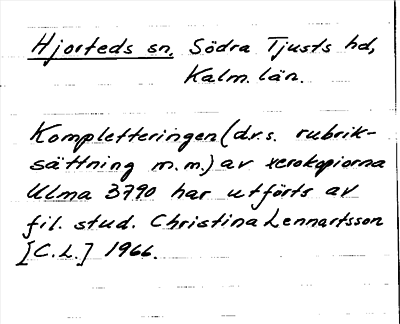 Hjorteds sn. Södra Tjusts hd,
Kalm. län.
Kompletteringen (d.v.s. rubrik-
sättning m.m.) av xerokopiorna
Ulma 3790 har utförts av
fil. stud. Christina Lennartsson
[C.L.] 1966.